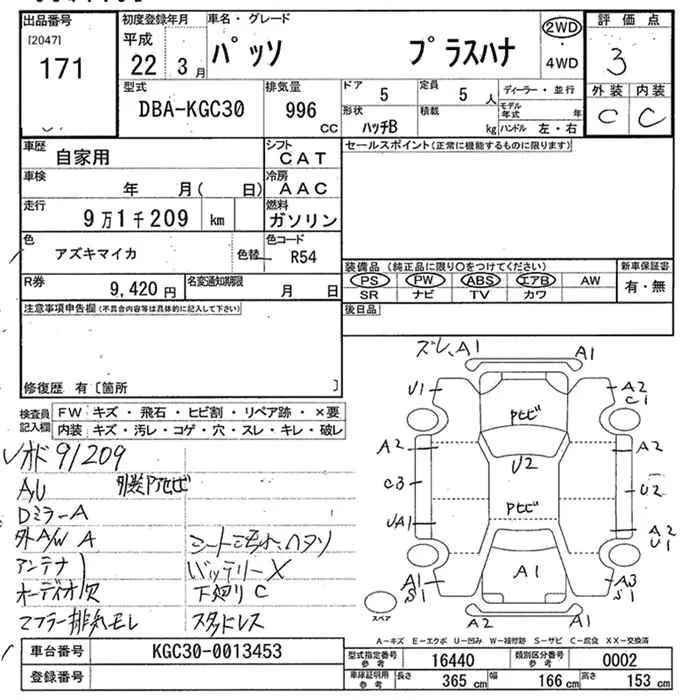 出品番号 初度登録年月 車名・グレード 評価点
[2047] 平成 パッソ プラスハナ 2WD
171 22 3月 ・4WD 3
型式 排気量 ドア 5 定員 5人 ディーラー・並行 外装 内装
DBA-KGC30 996cc 形状 ハッチB 積載 kg モデル年式 年 C C
ハンドル 左・右
車歴 自家用 シフト CAT セールスポイント(正常に機能するものに限ります)
車検 年 月( 日) 冷房 AAC
走行 9万1千209 km 燃料 ガソリン
色 アズキマイカ 色替 色コード R54
装備品(純正品に限り○をつけてください) 新車保証書
PS PW ABS エアB AW 有・無
SR ナビ TV カワ
R券 9,420円 名変通知期限 月 日
注意事項申告欄(不具合内容等は具体的に記入して下さい) 後日品
修復歴 有〔箇所 〕
検査員記入欄 FW キズ・飛石・ヒビ割・リペア跡・×要
内装 キズ・汚レ・コゲ・穴・スレ・キレ・破レ
ズレ、A1 A1
U1 A2 C1
Pヒビ
A2 A2
U2
C3 U2
Pヒビ
UA1 A2 U1
A1 S1 A1 A3 S1
スペア
メオド 91209
A,U 外装Pヒビ
DミラーA
外A/W A シート汚れ、ハクリ
アンテナ バッテリーX
オーディオ欠 下廻りC
マフラー排気モレ スタッドレス
A-キズ E-エクボ U-凹み W-補修跡 S-サビ C-腐食 XX-交換済
車台番号 KGC30-0013453 型式指定番号参考 16440 類別区分番号参考 0002
登録番号 車庫証明用参考 長さ 365cm 幅 166cm 高さ 153cm